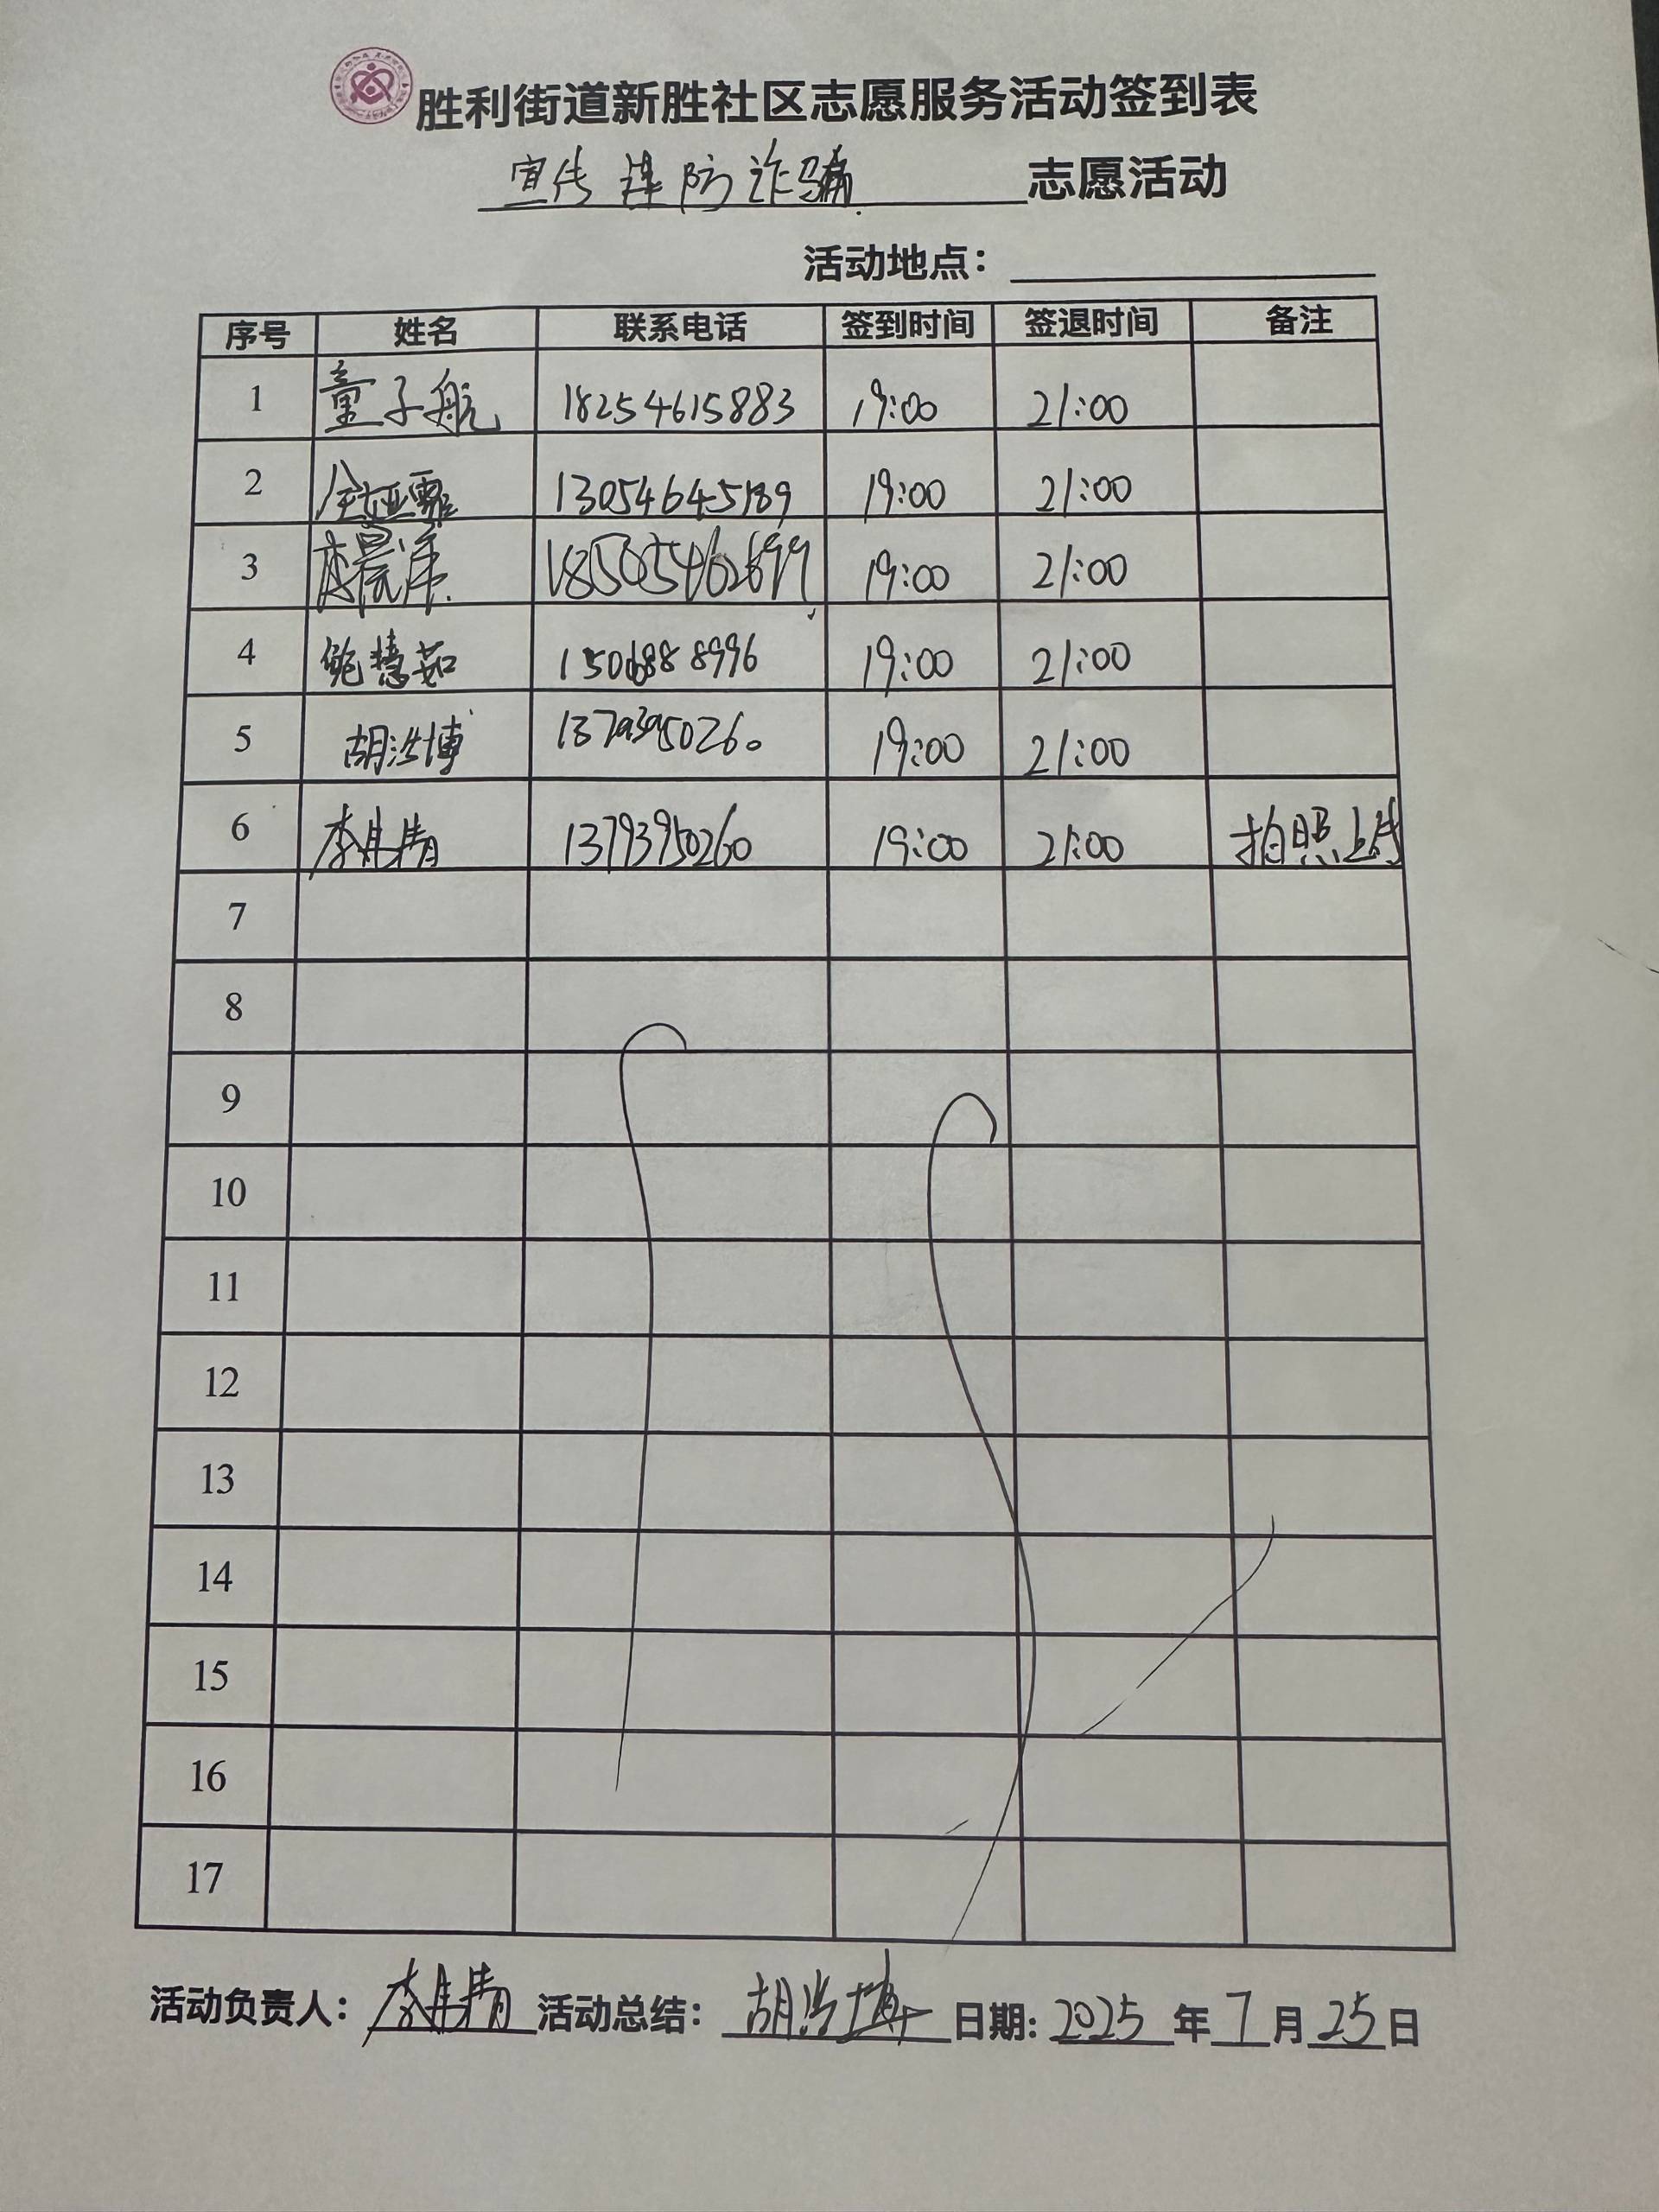 胜利街道新胜社区志愿服务活动签到表
宣传谨防诈骗 志愿活动
活动地点：
序号 姓名 联系电话 签到时间 签退时间 备注
1 童子航 18254615883 19:00 21:00
2 13054645189 19:00 21:00
3 李晨洋 18505462699 19:00 21:00
4 鲍慧茹 19:00 21:00
5 胡浩博 13793950260 19:00 21:00
6 李月娟 13793950260 19:00 21:00 拍照上传
7
8
9
10
11
12
13
14
15
16
17
活动负责人： 李月娟 活动总结： 胡浩博 日期: 2025 年 7 月 25 日